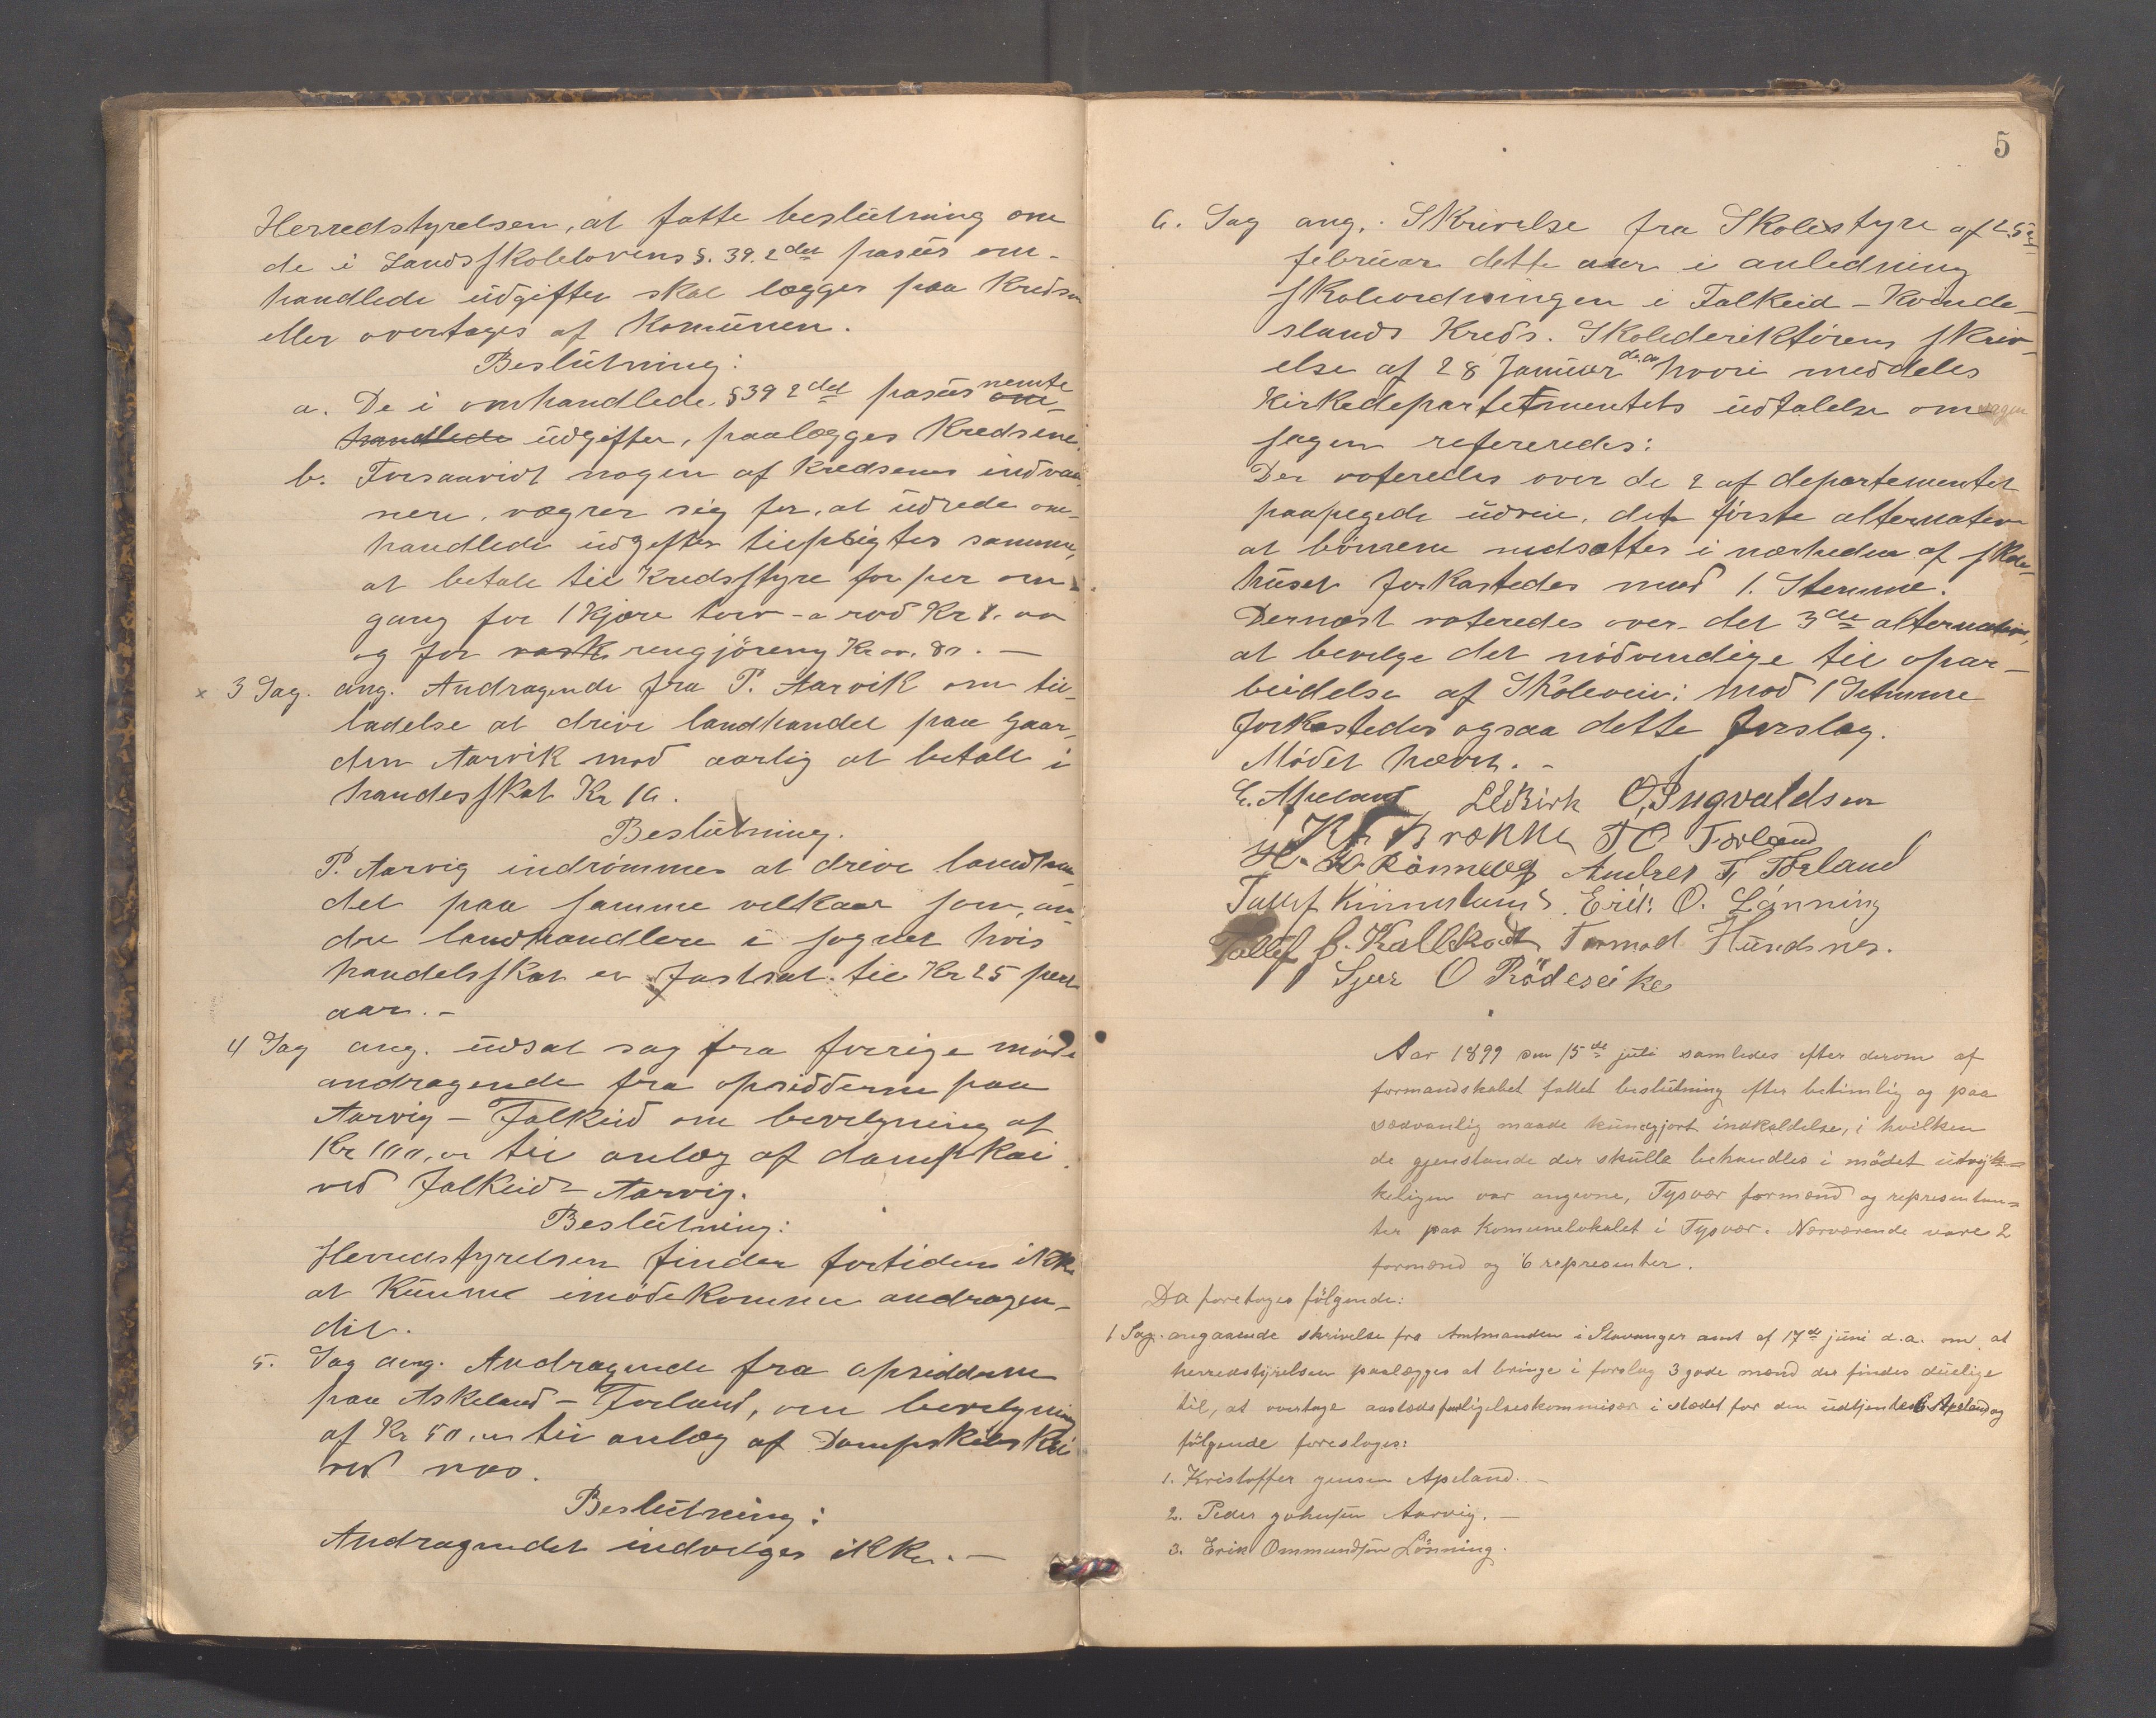 Herredstyrelsen, at fatte beslutning om
de i Landsskolelovens §. 39. 2det passus om-
handlede udgifter skal lægges paa Kredsen
eller overtages af Komunen.
Beslutning:
a. De i omhandlede §39 2det passus nemte om-
handlede udgifter, paalægges Kredsene.
b. Forsaavidt nogen af Kredsenes indvaa-
nere, vægrer sig for, at udrede om-
handlede udgifter tilpligtes samme,
at betale til Kredsstyre for per om-
gang for 1 kjøre torv - a rod Kr 8. oo
og for vask rengjöreng Kr oo. 80. —
x 3 Sag. ang. Andragende fra P. Aarvik om til-
ladelse at drive landhandel paa Gaar-
den Aarvik mod aarlig at betale i
handesskat Kr 10.
Beslutning.
P. Aarvig indrömmes at drive landhan-
del paa samme velkaar som, an-
dre landhandlere i sognet hvis
handelsskat er fastsat til Kr 25 per
aar. -
4 Sag ang. udsat sag fra forrige möde
andragende fra opsidderne paa
Aarvig - Falkeid om bevilgning af
Kr 100,oo til anlæg af dampkai
ved Falkeid - Aarvig.
Beslutning:
Herredstyrelsen finder fortiden ikke
at Kunne imödekomme andragen-
det.
5. Sag ang. Andragende fra opsidderne
paa Askeland - Forland, om bevilgning
af Kr 50,oo til anlæg af Dampskibs Kai
ved
Beslutning:
Andragendet indvilges ikke. —
5
6. Sag ang. Skrivelse fra Skolestyre af 25de
februar dette aar i anledning
skoleordningen i Falkeid - Kvinde-
slands Kreds. Skolederiktörens skriv-
else af 28 Januar d.a. hvori meddeles
Kirkedepartementets udtalelse om
sagen refereredes:
Der voteredes over de 2 af departementet
paapegede udveie. det förste alternativ
at börnene nedsættes i nærheden af skole-
huset forkastedes mod 1. Stemme.
Dernæst voteredes over det 3de alternativ,
at bevilge det nödvendige til opar-
beidelse af Skolevei; mod 1 Stemme
forkastedes ogsaa dette forslag.
Mödet hævet. -
E. Apeland L Birk O, Ingvaldsen
Kr. T O Førland
H. Rönnevog Andres T, Førland
Tallef Kinneslands Erik O. Lönning
Tallef J. Kallekodt Tormod Hundsnes.
Sjur O Rödeseike
Aar 1899 den 15de juli samledes efter derom af
formandskabet fattet beslutning efter betimlig og paa
sædvanlig maade kundgjort indkaldelse, i hvilken
de gjenstande der skulle behandles i mödet udtryk-
keligen var angivne, Tysvær formænd og representan-
ter paa Komunelokalet i Tysvær. Nærværende vare 2
formænd og 6 represenster.
Da foretages fölgende:
1 Sag. angaaende skrivelse fra Amtmanden i Stavanger amt af 17de juni d.a. om at
herredstyrelsen paalægges at bringe i forslag 3 gode mænd der findes duelige
til, at overtage aastedsforligelseskommisær i stedet for den udtjente E Apeland og
fölgende foreslages:
1. Kristoffer Jensen Apeland. -
2. Peder Johnsen Aarvig. —
3. Erik Ommundsen Lönning.